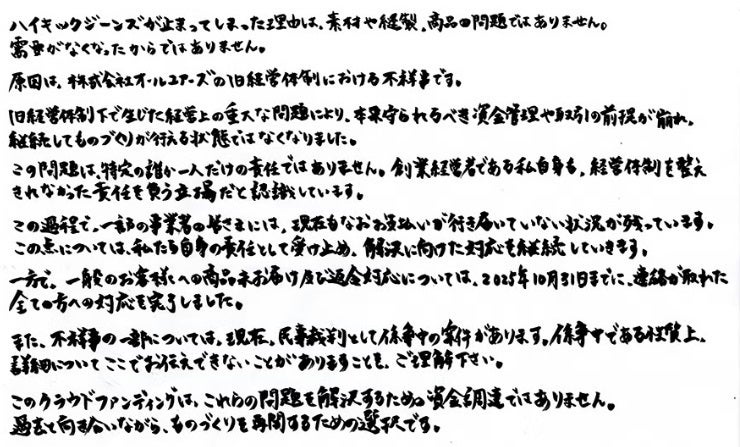 ハイキックジーンズが止まってしまった理由は、素材や縫製、商品の問題ではありません。
需要がなくなったからではありません。
原因は、株式会社オールユアーズの旧経営体制における不祥事です。
旧経営体制下で生じた経営上の重大な問題により、本来守られるべき資金管理や取引の前提が崩れ、
継続してものづくりが行える状態ではなくなりました。
この問題は、特定の誰か一人だけの責任ではありません。創業経営者である私自身も、経営体制を整え
きれなかった責任を負う立場だと認識しています。
この過程で、一部の事業者の皆さまには、現在もなおお支払いが行き届いていない状況が残っています。
この点については、私たち自身の責任として受け止め、解決に向けた対応を継続していきます。
一方で、一般のお客様への商品未お届け及び返金対応については、2025年10月31日までに、連絡が取れた
全ての方への対応を完了しました。
また、不祥事の一部については、現在、民事裁判として係争中の案件があります。係争中である性質上、
詳細についてここでお伝えできないことがありますことも、ご理解下さい。
このクラウドファンディングは、これらの問題を解決するための資金調達ではありません。
過去と向き合いながら、ものづくりを再開するための選択です。